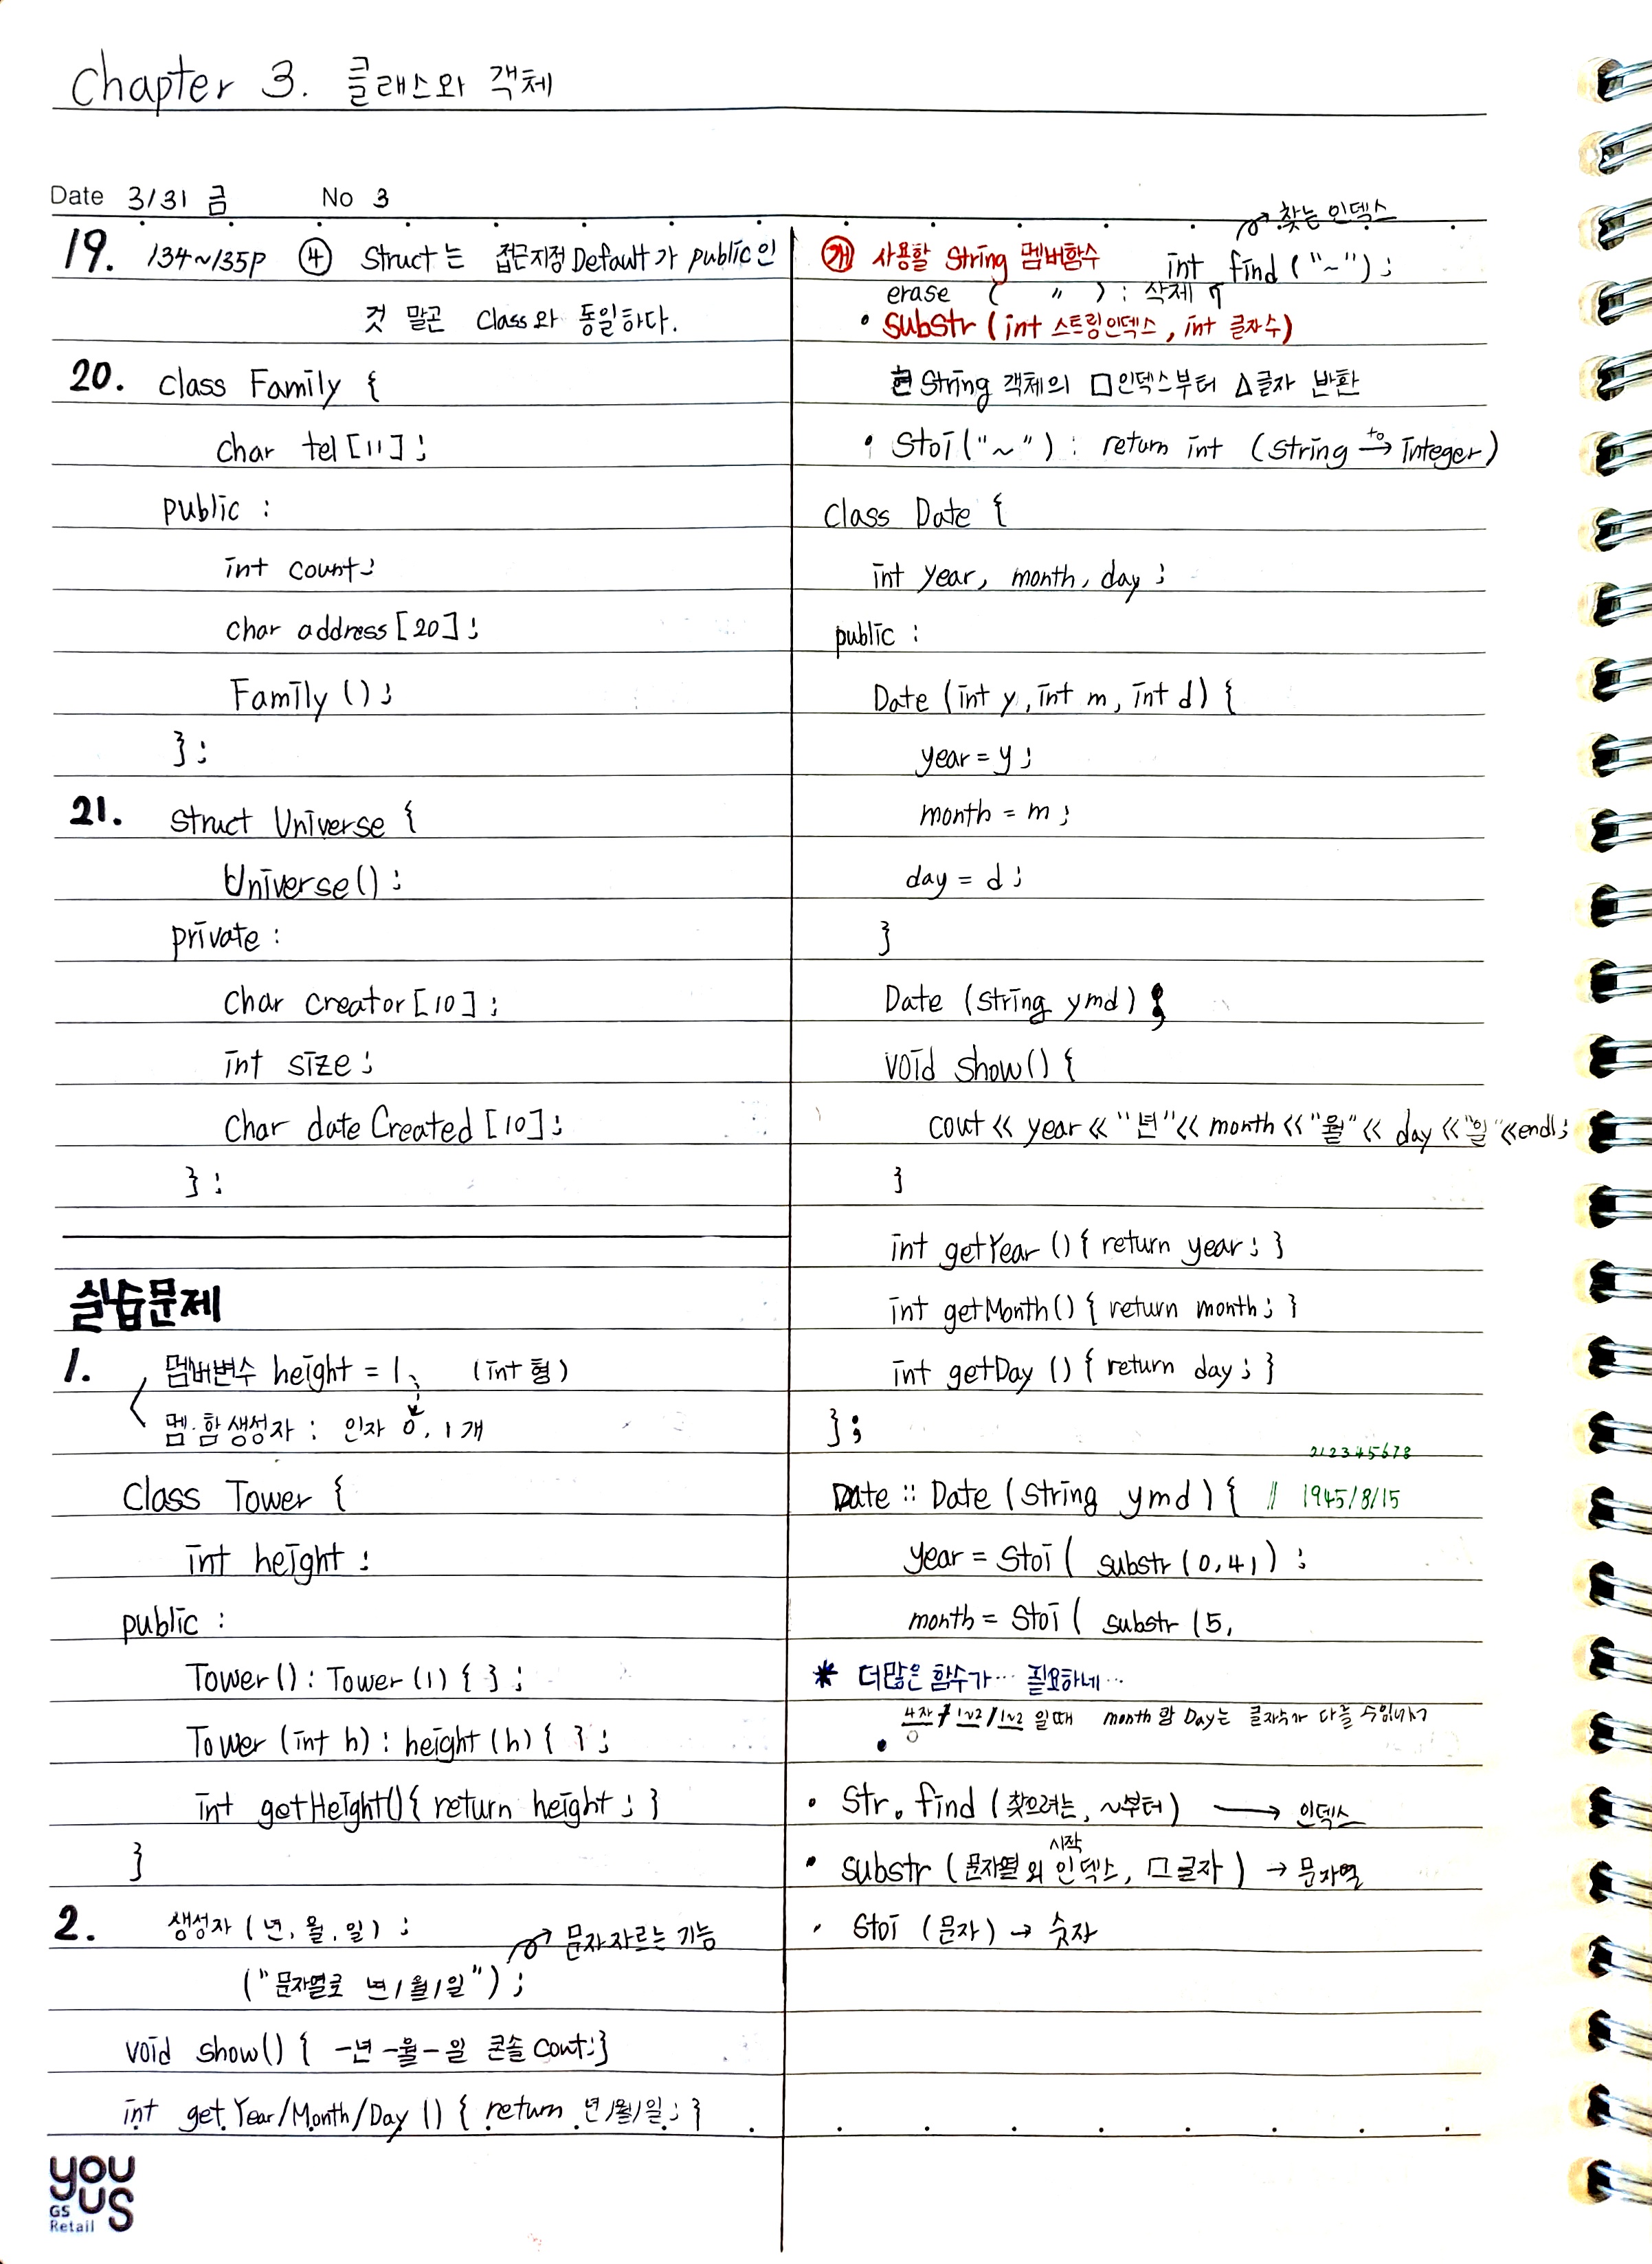 Chapter 3. 클래스와 객체
Date 3/31 금 No 3
19. 134~135P ④ Struct는 접근지정 Default가 public인
것 말곤 Class와 동일하다.
20. class Family {
char tel[11];
public :
int count;
char address[20];
Family();
};
21. struct Universe {
Universe();
private :
char creator[10];
int size;
char dateCreated[10];
};
실습문제
1. 멤버변수 height = 1, (int형)
멤·함 생성자 : 인자 0, 1개
class Tower {
int height;
public :
Tower() : Tower(1) { };
Tower (int h) : height(h) { };
int getHeight() { return height; }
}
2. 생성자 (년, 월, 일);
→ 문자 자르는 기능
("문자열로 년/월/일");
void show() { -년 -월 - 일 콘솔 cout;}
int get Year/Month/Day () { return 년/월/일; }
you
US
GS
Retail
→ 찾는 인덱스
사용할 string 멤버함수 int find ("~");
erase ( 〃 ) : 삭제
• substr (int 스트링인덱스, int 글자수)
현 String 객체의 □인덱스부터 △글자 반환
• Stoi("~") : return int (string to→ integer)
class Date {
int year, month, day;
public :
Date (int y, int m, int d) {
year = y;
month = m;
day = d;
}
Date (string ymd);
void show() {
cout << year << "년" << month << "월" << day << "일" << endl;
}
int getYear () { return year; }
int getMonth() { return month; }
int getDay () { return day; }
};
12345678
Date :: Date (string ymd) { // 1945/8/15
year = Stoi ( substr (0,4) );
month = Stoi ( substr (5,
* 더많은 함수가… 필요하네…
4자/1~2/1~2 일때 month와 Day는 글자수가 다를 수있어서
0
•
• Str. find (찾으려는, ~부터) → 인덱스
시작
• substr (문자열의 인덱스, □글자) → 문자열
• Stoi (문자) → 숫자